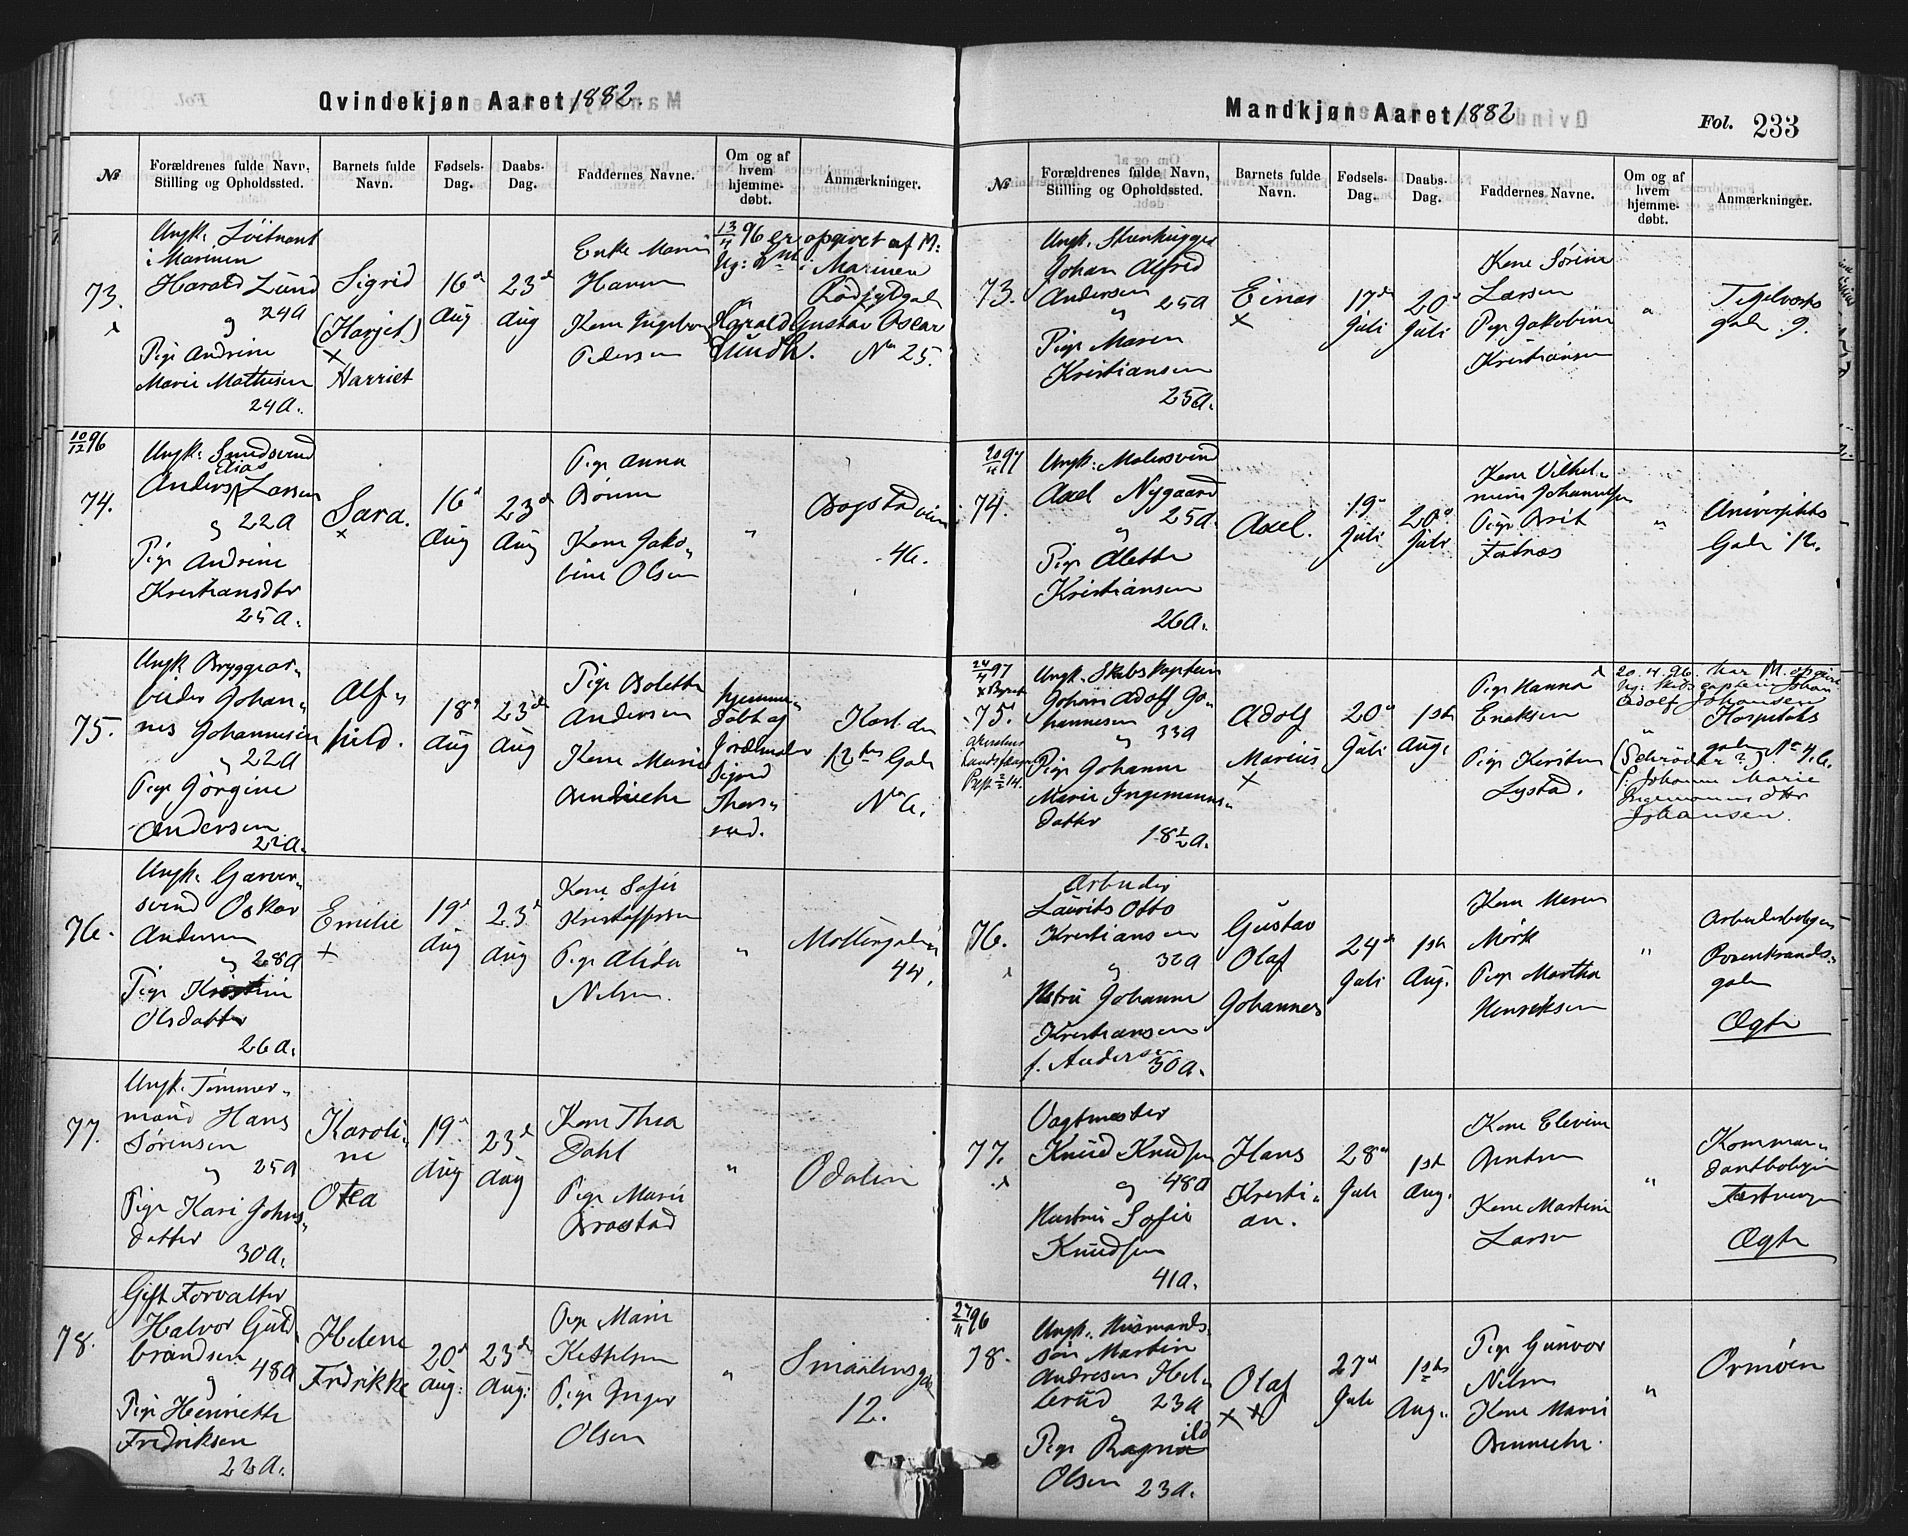 Qvindekjøn Aaret 1882.
№
Forældrenes fulde Navn, Stilling og Opholdssted.
Barnets fulde Navn.
Fødsels-Dag.
Daabs-Dag.
Faddernes Navne.
Om og af hvem hjemme-døbt.
Anmærkninger.
73.
Ungk. Löitnant
i Marinen
Harald Lund
24 A
og
Pige Andrine
Marie Mathisen
24 A.
Sigrid
(Harjet)
×
Harriet
16d
Aug
23d
Aug
Enke Maren
Hansen
Kone Ingeborg
Pedersen
13/4 96 er opgivet af M:
i Marinen
Rödfyldgade
Harald Gustav Oscar
No 25.
10/12 96
74.
Ungk. Smedsvend
Elias
Anders Larsen
og 22 A
Pige Andrine
Kristiansdtr
25 A.
Sara.
×
16d
Aug
23d
Aug
Pige Anna
Kone Jako„
bine Olsen
„
Bogstadveien
46.
75.
Ungk Bryggear„
beider Johan„
nes Johannesen
og 22 A
Pige Jörgine
Andersen
22 A.
Alf„
hild.
18d
Aug
23de
Aug
Pige Bolette
Andersen
Kone Marie
hjemme
döbt af
Jordmoder
Karl den
12tes Gade
No 6.
76.
Ungk. Garver„
svend Oskar
Andersen
og 28 A
Pige Kristine
Olsdatter
26 A.
Emilie
×
19d
Aug
23d
Aug
Kone Sofie
Kristoffersen
Pige Alida
Nilsen.
„
Möllergaden
44.
77.
Ungk. Tömmer„
mand Hans
Sörensen
og 25 A
Pige Kari Johns„
datter
30 A.
Karoli„
ne
Otea
19d
Aug
23d
Aug
Kone Thea
Dahl
Pige Marie
Braastad
„
Odalen
78.
Gift Forvalter
Halvor Guld„
brandsen
og 48 A
Pige Henriette
Fredriksen
22 A.
Helene
Fredrikke
20d
Aug.
23de
Aug.
Pige Marie
Ketilsen
Pige Inger
Olsen
„
Smaalensgd
12.
Mandkjøn Aaret 1882
Fol. 233
№
Forældrenes fulde Navn, Stilling og Opholdssted.
Barnets fulde Navn.
Fødsels-Dag.
Daabs-Dag.
Faddernes Navne.
Om og af hvem hjemme-døbt.
Anmærkninger.
73.
Ungk. Stenhugger
Johan Alfred
Andersen 25 A
og
Pige Maren
Kristiansen
25 A.
Einar
×
17de
Juli
20d
Juli
Kone Sörine
Larsen
Pige Jakobine
Kristiansen
„
Tegelverks
gade 9.
74.
Ungk. Malersvend
Axel Nygaard
25 A.
og
Pige Alette
Kristiansen
26 A.
Axel.
19d
Juli
20d
Juli
Kone Vilhel„
mine Johannesen
Pige Brit
„
Universitets
Gade 12.
24/4 97
75.
Ungk. Skibskaptein
Johan Adolf Jo„
hannesen
og 33 A
Pige Johanne
Marie Ingemanns„
datter
18½ A.
Adolf
Marius
×
20d
Juli
1ste
Aug.
Pige Hanna
Eriksen
Pige Kirsten
Lystad.
20.4.96. har M. opgivet
Ug: Skibscaptein Johan
Adolf Johansen
Hospitals
gaden No 4. C.
(Schröder?)
P. Johanne Marie
Ingemanns dtter
Johansen.
76.
Arbeider
Laurits Otto
Kristiansen
og 32 A
Hstru Johanne
Kristiansen
f. Andersen
30 A.
Gustav
Olaf
Johannes
24d
Juli
1ste
Aug.
Kone Maren
Mörk
Pige Martha
Henriksen
„
Arbeiderboligen
Rosenkrands„
gaden
Ægte
77.
Vagtmester
Knud Knudsen
og 48 A
Hustru Sofie
Knudsen
41 A.
Hans
Kristi„
an.
28d
Juli
1ste
Aug.
Kone Elevine
Berntsen
Kone Martine
Larsen
„
Komman„
dantboligen
Fæstningen
Ægte
27/11 96
78.
Ungk. Husmands„
sön Martin
Andresen Hel„
lerud 23 A
og
Pige Ragnild
Olsen 23 A.
Olaf
× ×
27d
Juli
1ste
Aug.
Pige Gunvor
Nilsen
Kone Marie
„
Ormöen